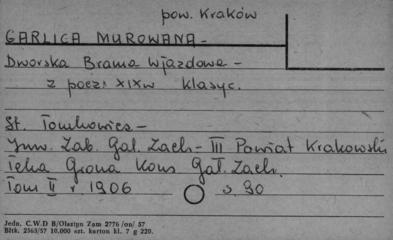 pow. Kraków
GARLICA MUROWANA -
Dworska Brama Wjazdowa -
z pocz. XIX w klasyc.
St. Tomkowicz -
Inw. Zab. Gal. Zach - III Powiat Krakowski
Teka Grona Kons Gal. Zach.
Tom II r. 1906 s. 90
Jedn. C.W.D B/Olsztyn Zam 2776 /on/ 57
Błtk. 2563/57 10.000 szt. karton kl. 7 g 220.